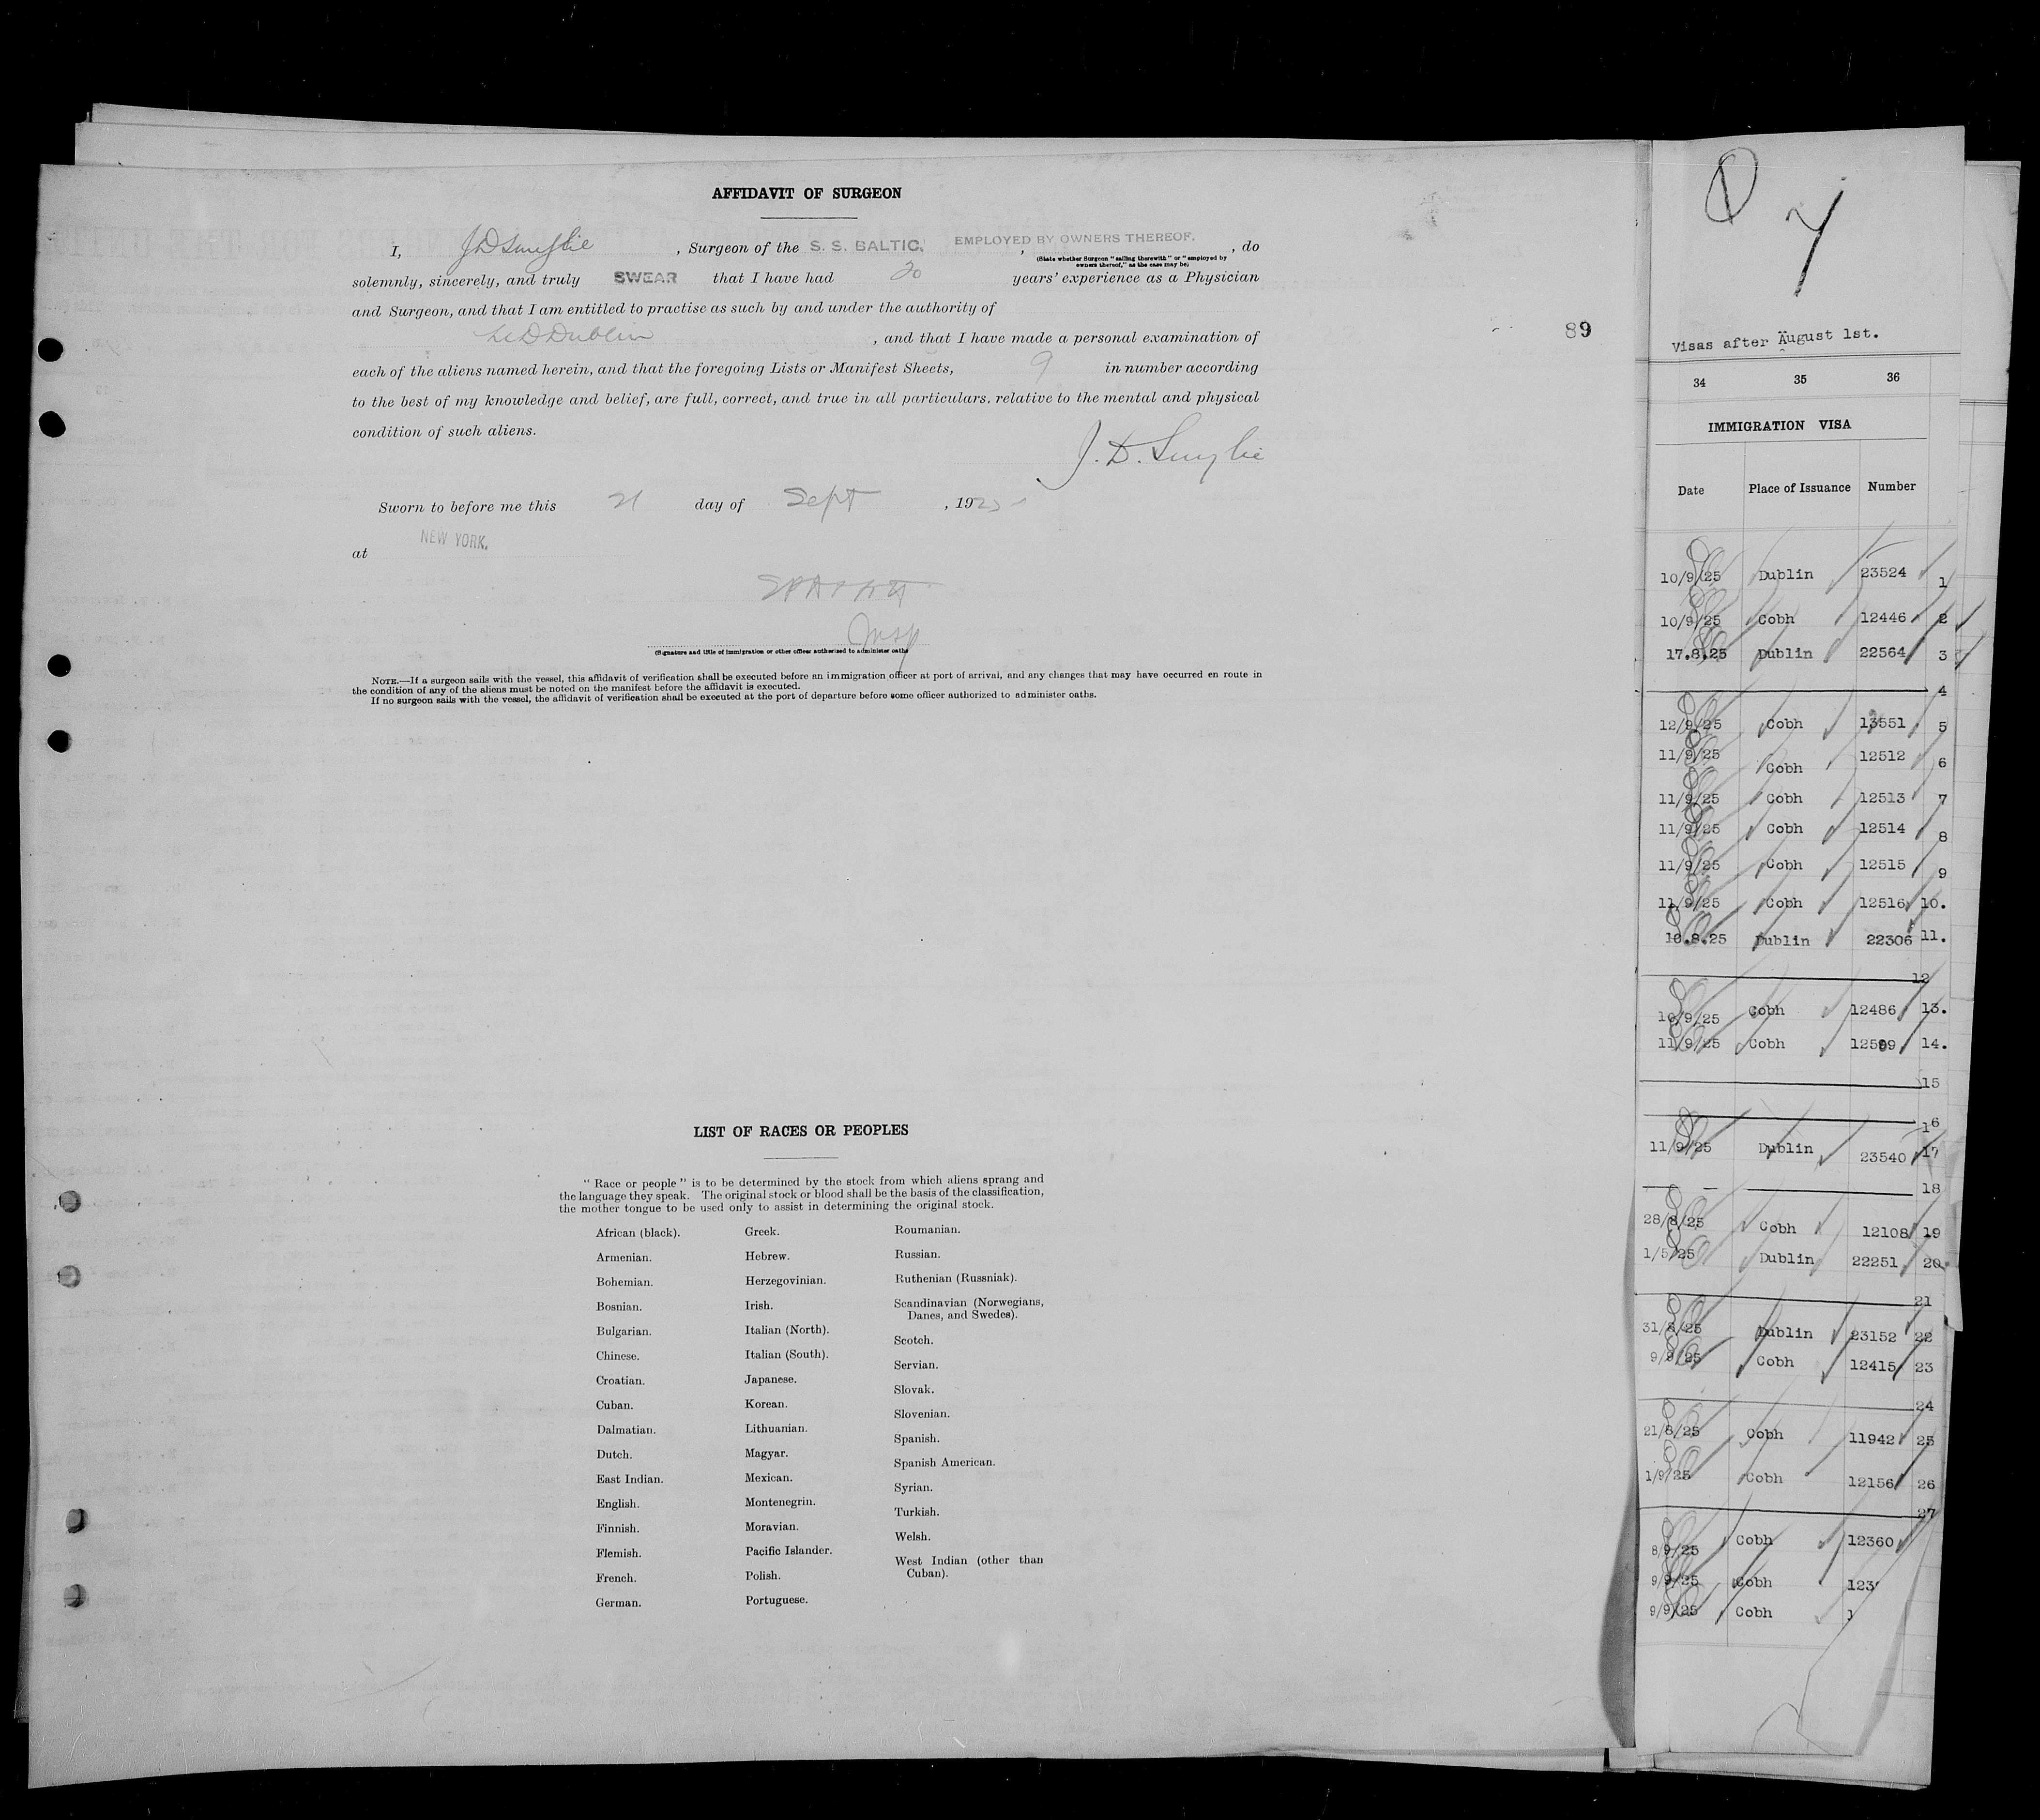 AFFIDAVIT OF SURGEON
I, J D Smylie , Surgeon of the S. S. BALTIC, EMPLOYED BY OWNERS THEREOF. , do
(State whether Surgeon "sailing therewith" or "employed by owners thereof," as the case may be)
solemnly, sincerely, and truly SWEAR that I have had 20 years' experience as a Physician
and Surgeon, and that I am entitled to practise as such by and under the authority of
Dublin , and that I have made a personal examination of
each of the aliens named herein, and that the foregoing Lists or Manifest Sheets, 9 in number according
to the best of my knowledge and belief, are full, correct, and true in all particulars, relative to the mental and physical
condition of such aliens.
J. D. Smylie
Sworn to before me this 21 day of Sept , 1925
at NEW YORK.
(Signature and title of immigration or other officer authorized to administer oaths
NOTE.—If a surgeon sails with the vessel, this affidavit of verification shall be executed before an immigration officer at port of arrival, and any changes that may have occurred en route in
the condition of any of the aliens must be noted on the manifest before the affidavit is executed.
If no surgeon sails with the vessel, the affidavit of verification shall be executed at the port of departure before some officer authorized to administer oaths.
LIST OF RACES OR PEOPLES
" Race or people " is to be determined by the stock from which aliens sprang and
the language they speak. The original stock or blood shall be the basis of the classification,
the mother tongue to be used only to assist in determining the original stock.
African (black).
Armenian.
Bohemian.
Bosnian.
Bulgarian.
Chinese.
Croatian.
Cuban.
Dalmatian.
Dutch.
East Indian.
English.
Finnish.
Flemish.
French.
German.
Greek.
Hebrew.
Herzegovinian.
Irish.
Italian (North).
Italian (South).
Japanese.
Korean.
Lithuanian.
Magyar.
Mexican.
Montenegrin.
Moravian.
Pacific Islander.
Polish.
Portuguese.
Roumanian.
Russian.
Ruthenian (Russniak).
Scandinavian (Norwegians,
Danes, and Swedes).
Scotch.
Servian.
Slovak.
Slovenian.
Spanish.
Spanish American.
Syrian.
Turkish.
Welsh.
West Indian (other than
Cuban).
89
Visas after August 1st.
34 35 36
IMMIGRATION VISA
Date Place of Issuance Number
10/9/25 Dublin 23524 1
10/9/25 Cobh 12446 2
17.8.25 Dublin 22564 3
4
12/9/25 Cobh 13551 5
11/9/25 Cobh 12512 6
11/9/25 Cobh 12513 7
11/9/25 Cobh 12514 8
11/9/25 Cobh 12515 9
11/9/25 Cobh 12516 10.
10.8.25 Dublin 22306 11.
12
10/9/25 Cobh 12486 13.
11/9/25 Cobh 12599 14.
15
16
11/9/25 Dublin 23540 17
18
28/8/25 Cobh 12108 19
1/5/25 Dublin 22251 20
21
31/8/25 Dublin 23152 22
9/9/25 Cobh 12415 23
24
21/8/25 Cobh 11942 25
1/9/25 Cobh 12156 26
27
8/9/25 Cobh 12360
9/9/25 Cobh 123
9/9/25 Cobh 1